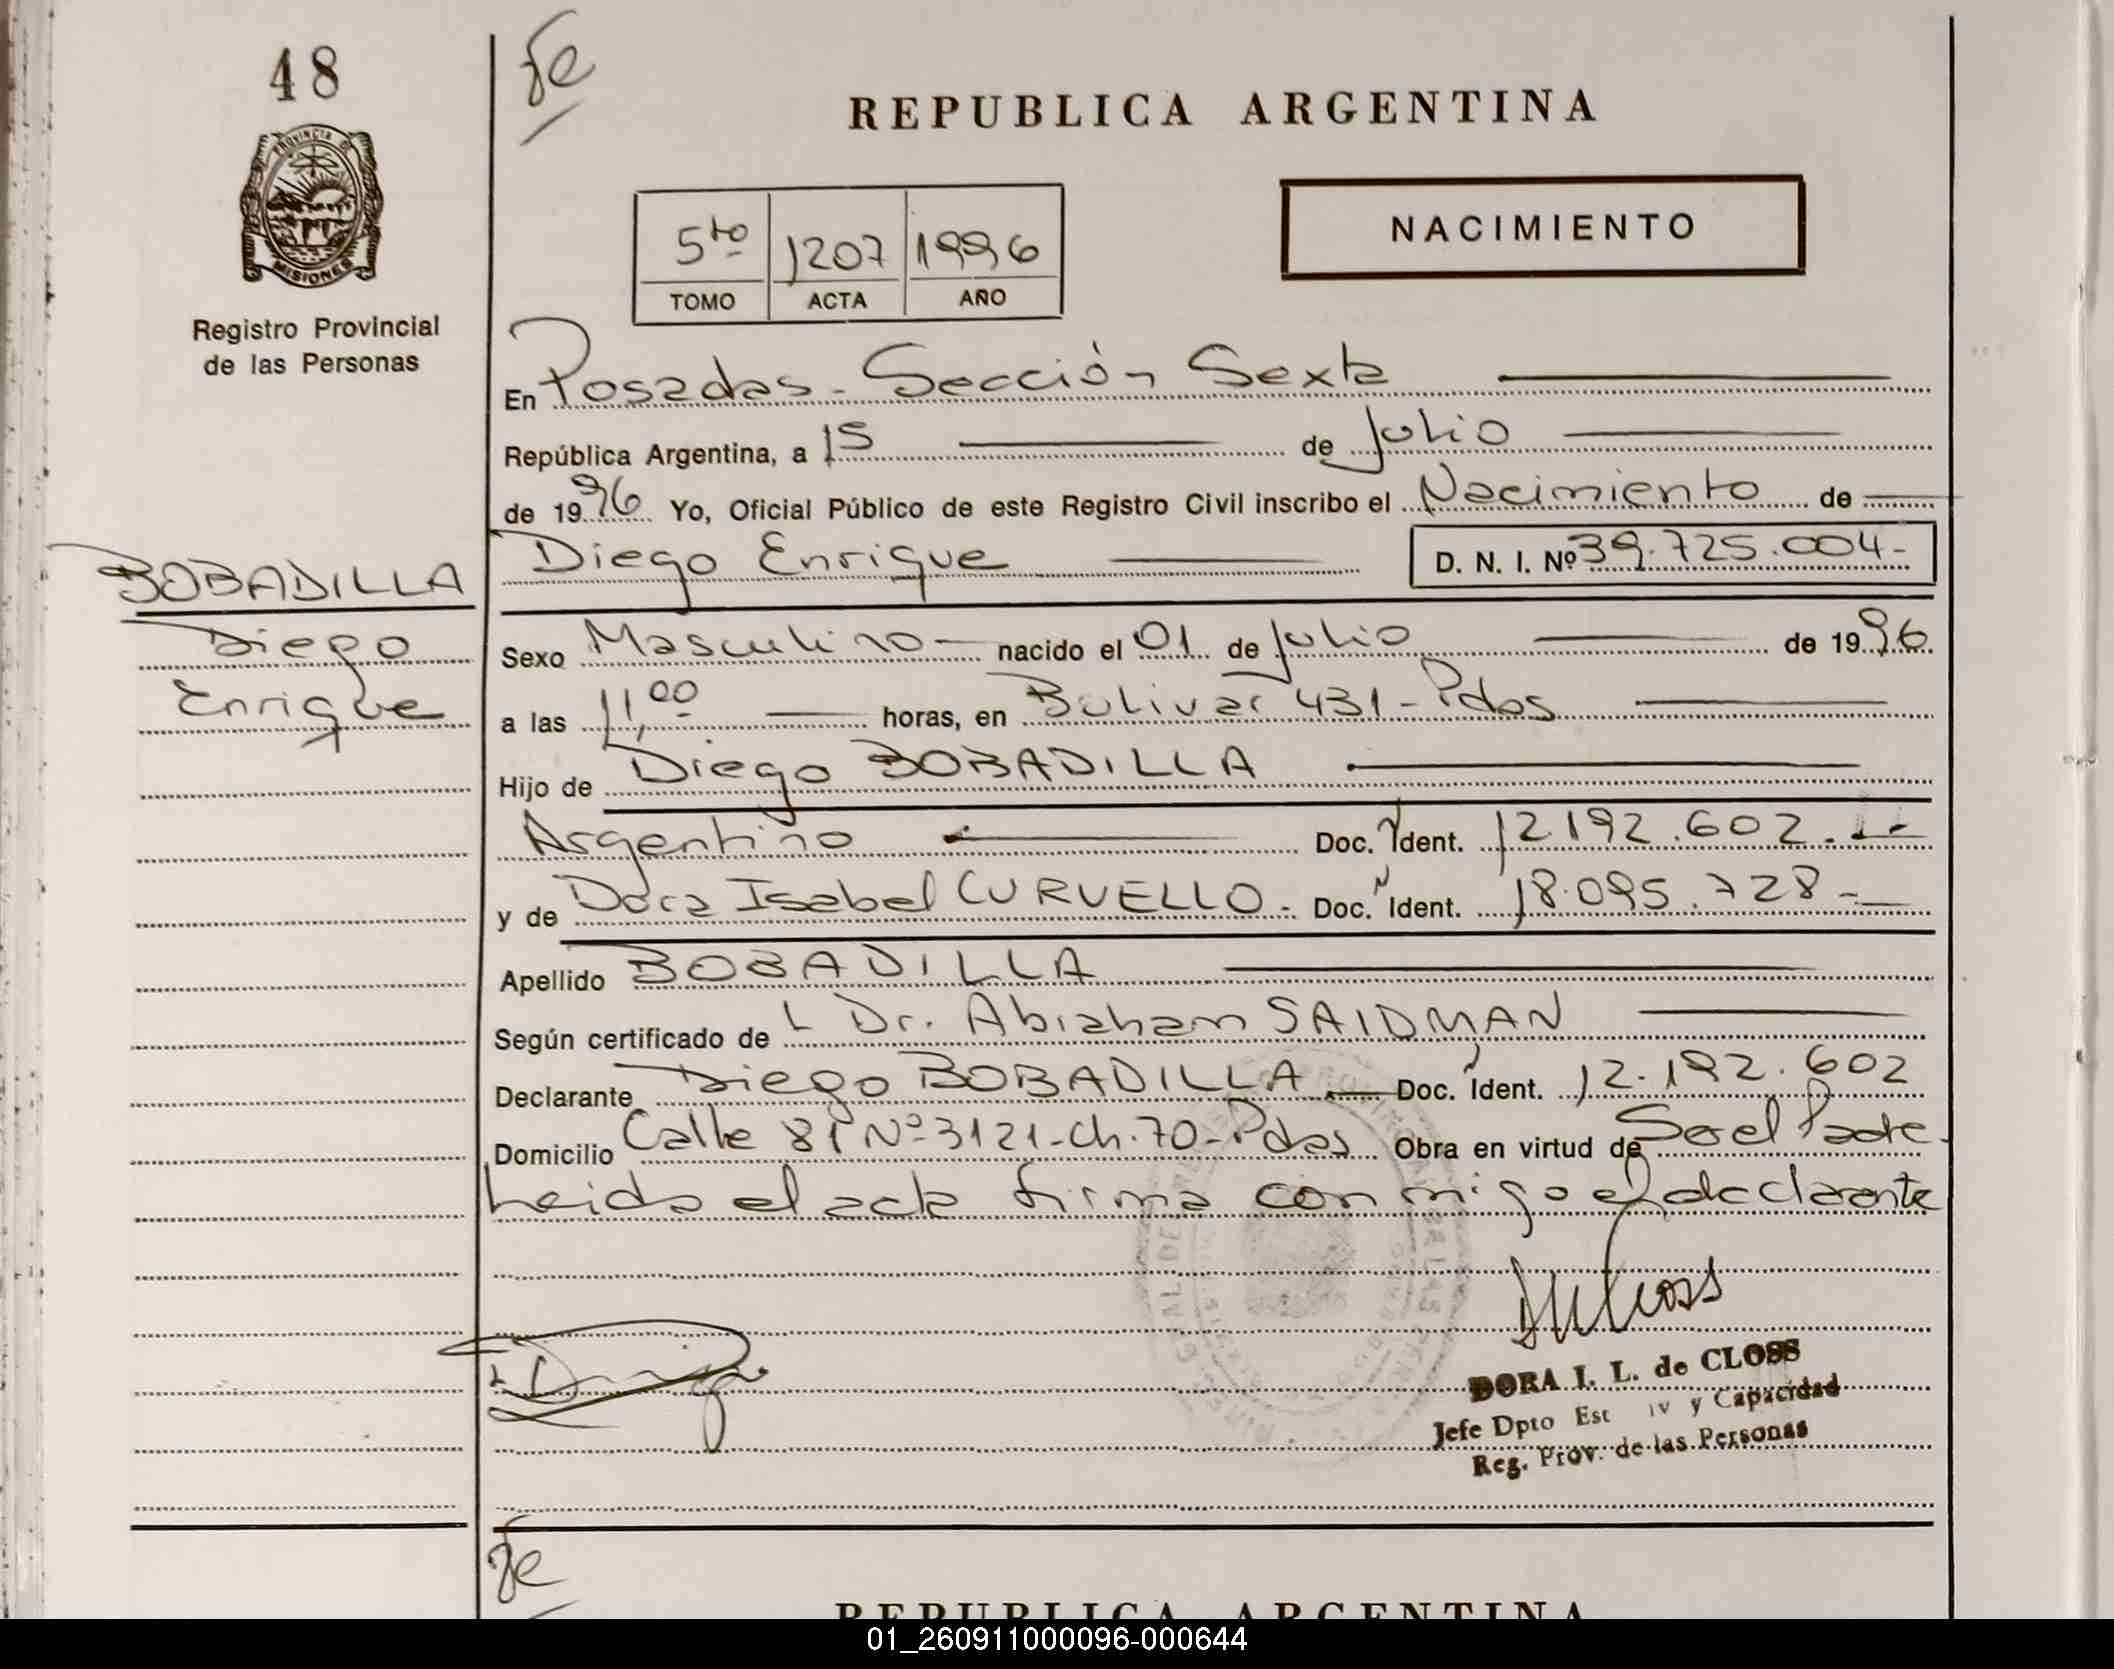 48
PROVINCIA DE
MISIONES
Registro Provincial
de las Personas
BOBADILLA
Diego
Enrique
REPUBLICA ARGENTINA
5to 1207 1996
TOMO ACTA AÑO
NACIMIENTO
En Posadas - Sección Sexta
República Argentina, a 15 de Julio
de 1996 Yo, Oficial Público de este Registro Civil inscribo el Nacimiento de
Diego Enrique D. N. I. Nº 39.725.004-
Sexo Masculino nacido el 01 de Julio de 1996
a las 11,00 horas, en Bolivar 431 - Pdas
Hijo de Diego BOBADILLA
Argentino Doc. Ident. 12.192.602.-
y de Dora Isabel CURVELLO - Doc. Ident. 18.095.728-
Apellido BOBADILLA
Según certificado de L Dr. Abraham SAIDMAN
Declarante Diego BOBADILLA Doc. Ident. 12.192.602
Domicilio Calle 81 Nº 3121 - Ch. 70 - Pdas Obra en virtud de Ser el Padre-
Leida el acta firma conmigo el declarante
DORA I. L. de CLOSS
Jefe Dpto Est iv y Capacidad
Reg. Prov. de las Personas
REPUBLICA ARGENTINA
01_260911000096-000644